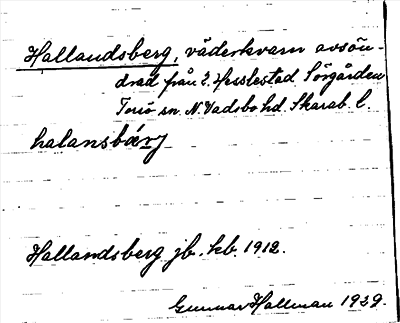 Hallandsberg, väderkvarn avsön-
drad från 2. Hesslestad Sörgården
Torsö sn. N. Vadsbo hd. Skarab. l.
halansbærj
Hallandsberg jb. kb. 1912.
Gunnar Hallman 1929.